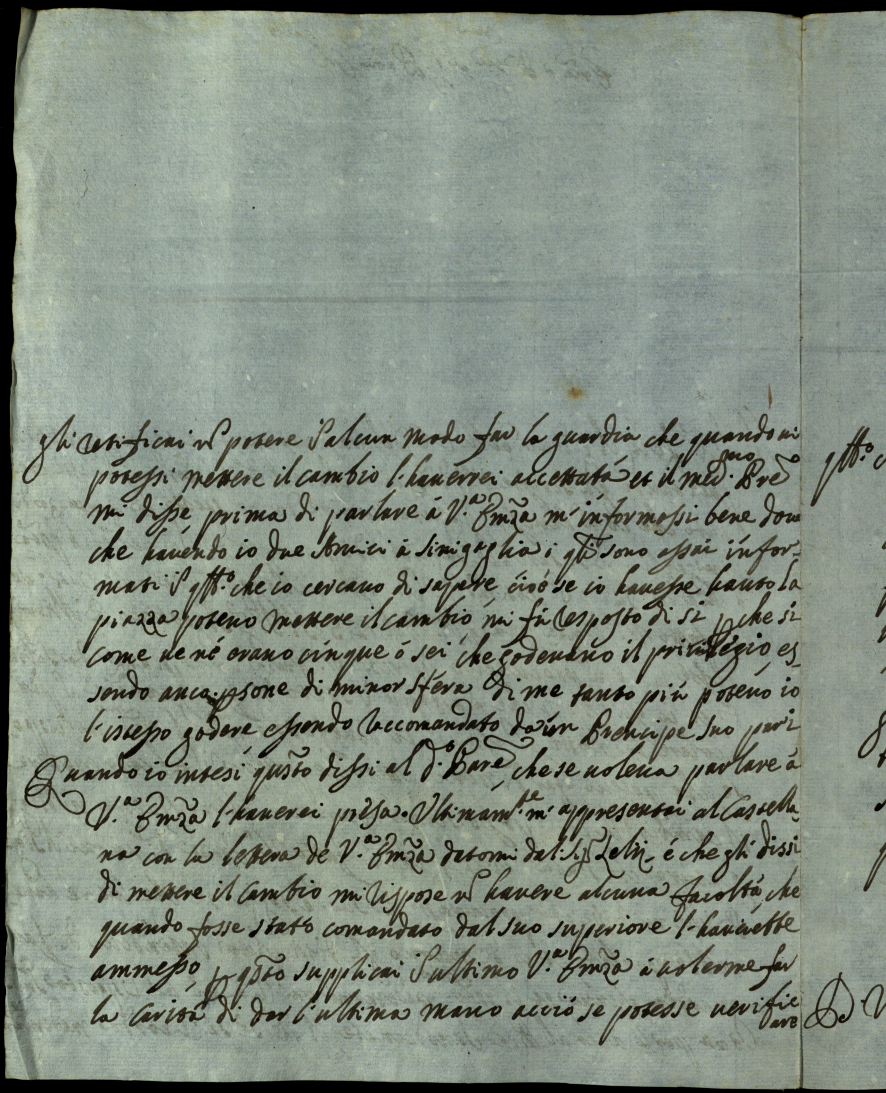 gli retificai nõ potere i alcun modo far la guardia che quando vi
potessi mettere il cambio l'haverrei accettatá et il med.mo Pre
mi disse, prima di parlare á V.a Emza m'informassi bene dove
che havendo io due Amici á Sinigaglia i qli sono assai infor-
mati i qsto che io cercano di sapere cioó se io havesse hauto la
piazza potevo mettere il cambio mi fú resposto di si p che si
come ve né erano cinque ó sei che godevano il privilegio es-
sendo anco psone di minor sfera di me tanto piú potevó io
l'istesso godere essendo raccomandato da un Prencipe suo pari
Quando io intesi questo dissi al d.o Pare che se voleva parlare á
V.a Emza l'haverei presa. Ultimam.te m'appresentai al Castella-
no con la lettera de V.a Emza datomi dal Sigr é che gli dissi
di mettere il Cambio mi rispose nõ havere alcuna facoltá che
quando fosse stato comandato dal suo superiore l'haverebbe
ammesso p qsto supplicai i ultimo V.a Emza á volerme far
la caritá di dar l'ultima mano acció se potesse verific
are